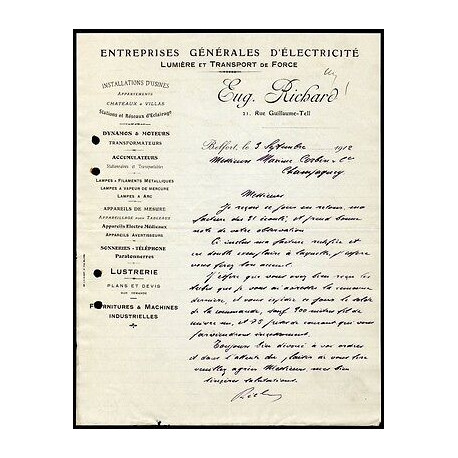 ENTREPRISES GÉNÉRALES D'ÉLECTRICITÉ
LUMIÈRE ET TRANSPORT DE FORCE
Eug. Richard
21, RUE GUILLAUME-TELL
INSTALLATIONS D'USINES
APPARTEMENTS
CHATEAUX & VILLAS
Stations et Réseaux d'Eclairage
DYNAMOS & MOTEURS
TRANSFORMATEURS
ACCUMULATEURS
Stationnaires et Transportables
LAMPES A FILAMENTS MÉTALLIQUES
LAMPES A VAPEUR DE MERCURE
LAMPES A ARC
APPAREILS DE MESURE
APPAREILLAGE POUR TABLEAUX
Appareils Electro Médicaux
APPAREILS AVERTISSEURS
SONNERIES - TÉLÉPHONE
Paratonnerres
LUSTRERIE
PLANS ET DEVIS
SUR DEMANDE
FOURNITURES & MACHINES
INDUSTRIELLES
Belfort, le 3 Septembre 1912
Messieurs Cie
Champagney
Messieurs
Je reçois ce jour en retour, ma
facture du 31 écoulé, et prend bonne
note de votre observation
Ci inclus ma facture rectifiée et
en double exemplaire à laquelle j'espère
vous ferez bon accueil.
J'espère que vous avez bien reçu les
que je vous ai la commande
dernière, et vous expédie ce jour le solde
de la commande, sauf 500 mètres fil de
et 75 que
parviendront
Toujours bien dévoué à vos ordres
et dans l'attente du plaisir de vous lire
veuillez agréer Messieurs, mes bien
sincères salutations.